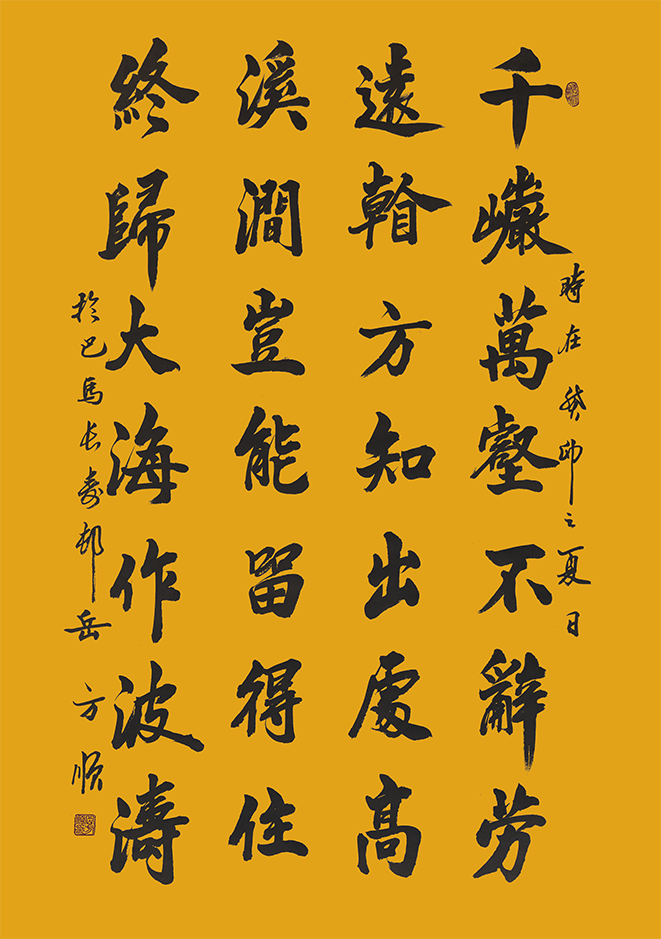 時在癸卯之夏日
千巗萬壑不辭劳
遠看方知出處高
溪澗豈能留得住
終歸大海作波濤
於巴馬长寿邨岳方順